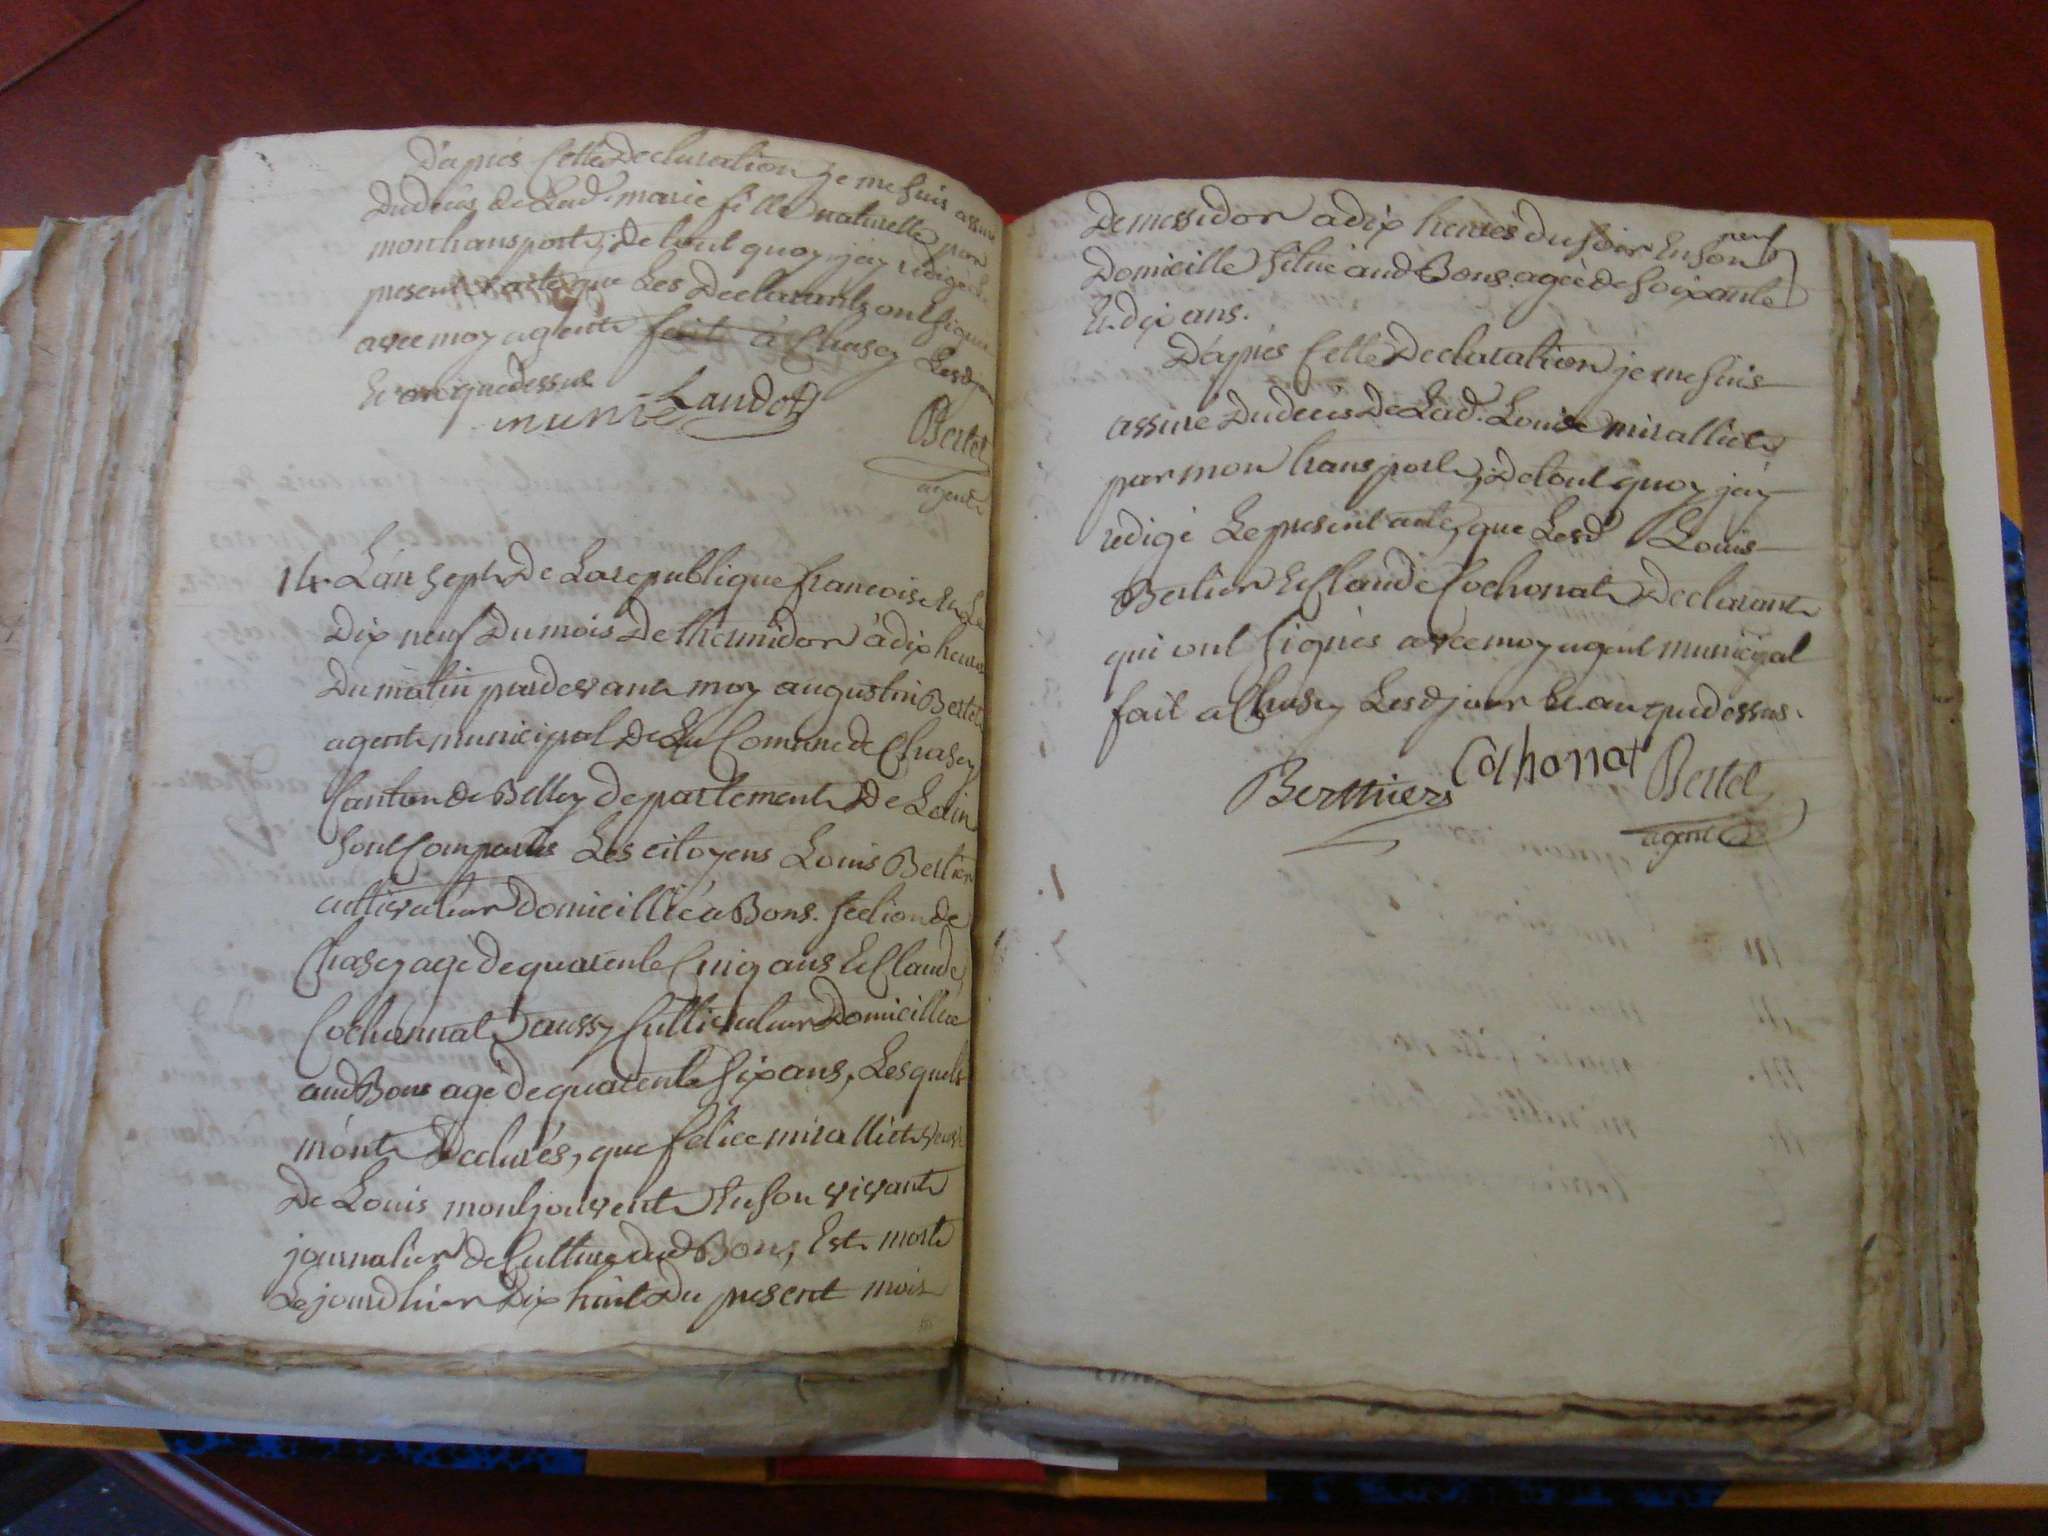 D'aprés Cette Declaration je me suis assuré
Du decés de Lad. marie fille naturelle par
mon transporte, De tout quoy j'ay redigé Le
present acte que Les Declarants ont signé
avec moy agent fait à Chasey Lesd jour
Et an que dessus
munie Landoz
Bertet
agent
14. L'an sept De La republique francoise Et Le
Dix neuf Du mois De thermidor à dix heures
Du matin pardevant moy augustin Bertet
agent municipal De La Comune de Chasey
Canton de Belley departement De Lain
sont Comparus Les citoyens Louis Bertier
cultivateur Domicillié à Bons. section de
Chasey agé de quarente Cinq ans Et Claude
Cochonnat aussy Cultivateur Domicillié
aud Bons agé de quarente six ans, Les quels
m'ont Declarés, que felice miralliet veuve
De Louis montjouvent En son vivant
journalier de Culture dud Bons, Est morte
Le jourdhier Dix huit Du present mois
De messidor a dix heures du soir En son
neuf
Domicille situé aud Bons. agée de soixante
Et dix ans.
D'aprés Cette Declaration je me suis
assuré Du decés De Lad. Louise miralliet
par mon transporte, De tout quoy j'ay
redigé Le present acte, que Lesd Louis
Bertier Et Claude Cochonat Declarant
qui ont signés avec moy agent municipal
fait a Chasey Lesd jour et an que dessus.
Berthier Cochonat Bertet
agent